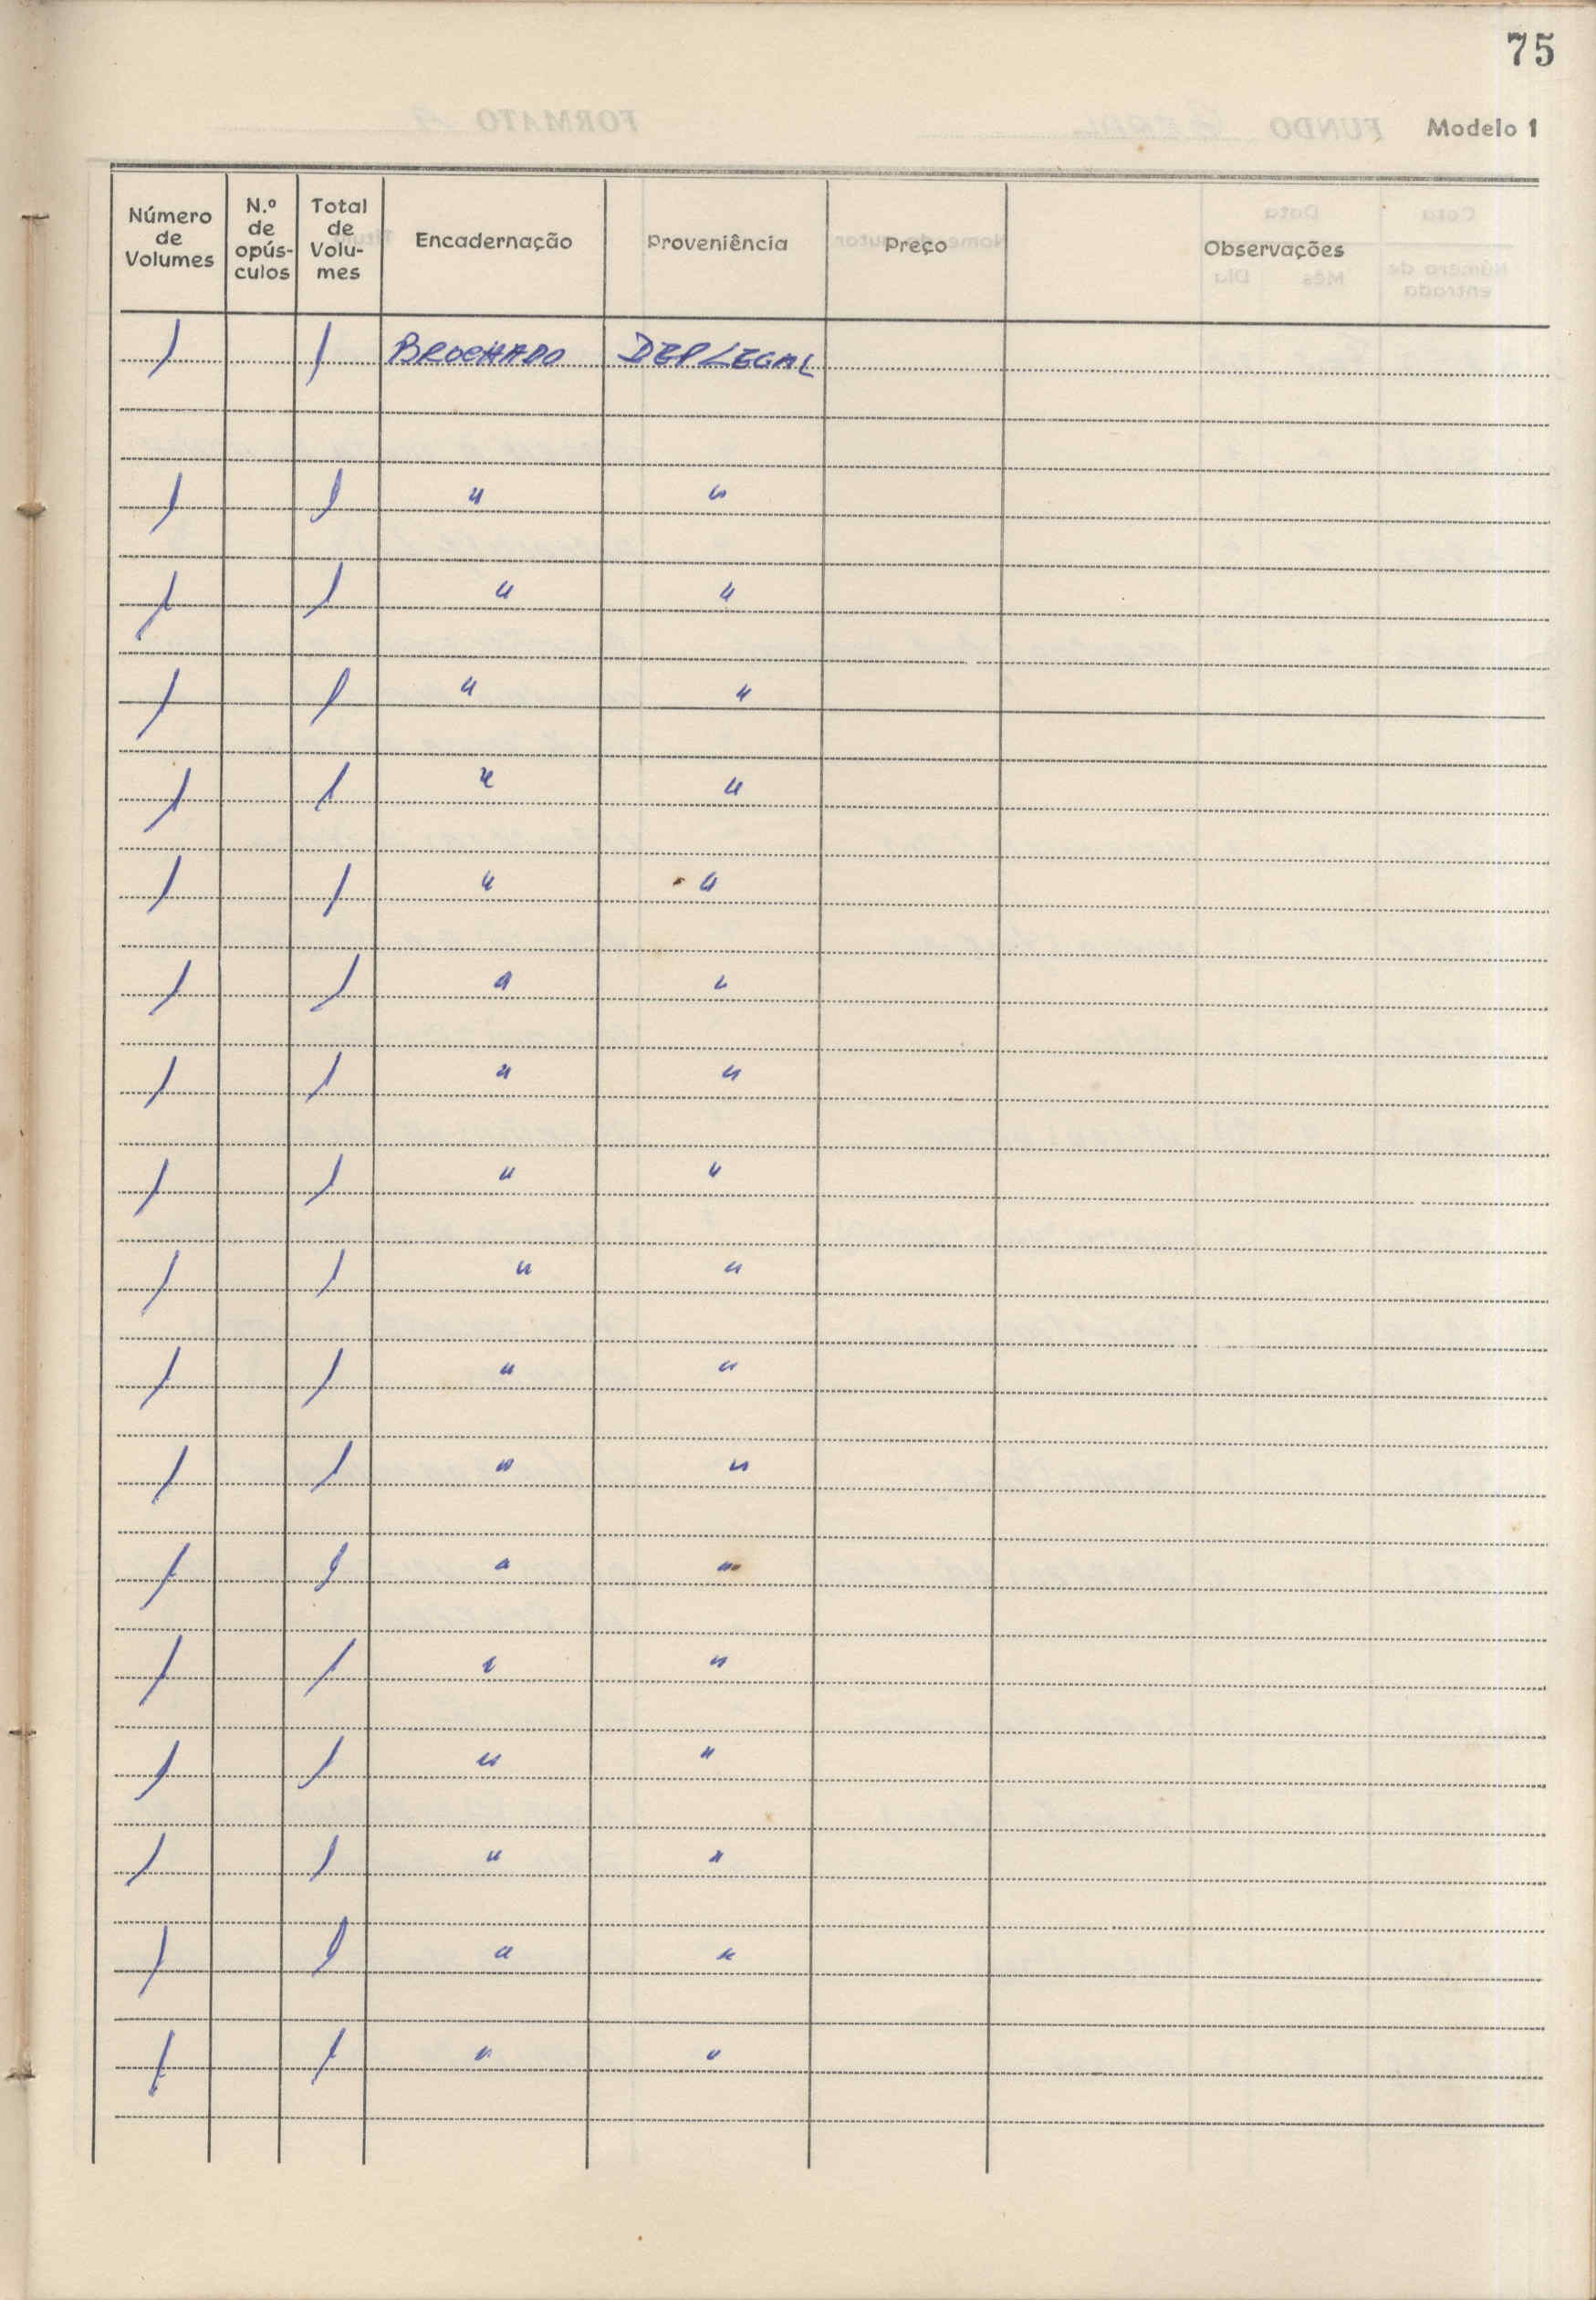 75
Modelo 1
Número de Volumes | N.º de opús-culos | Total de Volu-mes | Encadernação | Proveniência | Preço | Observações
1 | | 1 | BROCHADO | DEP LEGAL
1 | | 1 | " | "
1 | | 1 | " | "
1 | | 1 | " | "
1 | | 1 | " | "
1 | | 1 | " | "
1 | | 1 | " | "
1 | | 1 | " | "
1 | | 1 | " | "
1 | | 1 | " | "
1 | | 1 | " | "
1 | | 1 | " | "
1 | | 1 | " | "
1 | | 1 | " | "
1 | | 1 | " | "
1 | | 1 | " | "
1 | | 1 | " | "
1 | | 1 | " | "